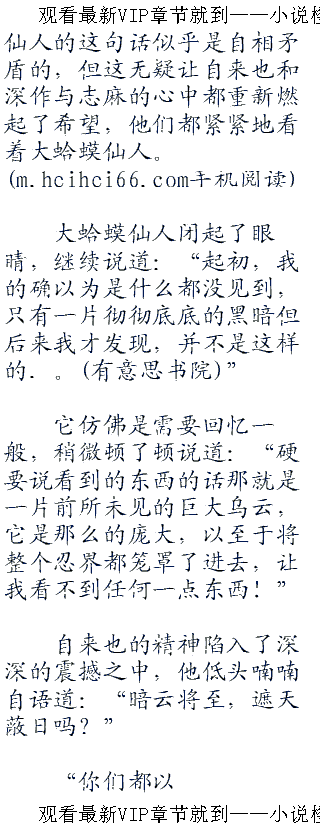 观看最新VIP章节就到——小说
仙人的这句话似乎是自相矛
盾的，但这无疑让自来也和
深作与志麻的心中都重新燃
起了希望，他们都紧紧地看
着大蛤蟆仙人。
(m.hcihci66.com手机阅读)
大蛤蟆仙人闭起了眼
睛，继续说道：“起初，我
的确以为是什么都没见到，
只有一片彻彻底底的黑暗但
后来我才发现，并不是这样
的．。(有意思书院)”
它仿佛是需要回忆一
般，稍微顿了顿说道：“硬
要说看到的东西的话那就是
一片前所未见的巨大乌云，
它是那么的庞大，以至于将
整个忍界都笼罩了进去，让
我看不到任何一点东西！”
自来也的精神陷入了深
深的震撼之中，他低头喃喃
自语道：“暗云将至，遮天
蔽日吗？”
“你们都以
观看最新VIP章节就到——小说